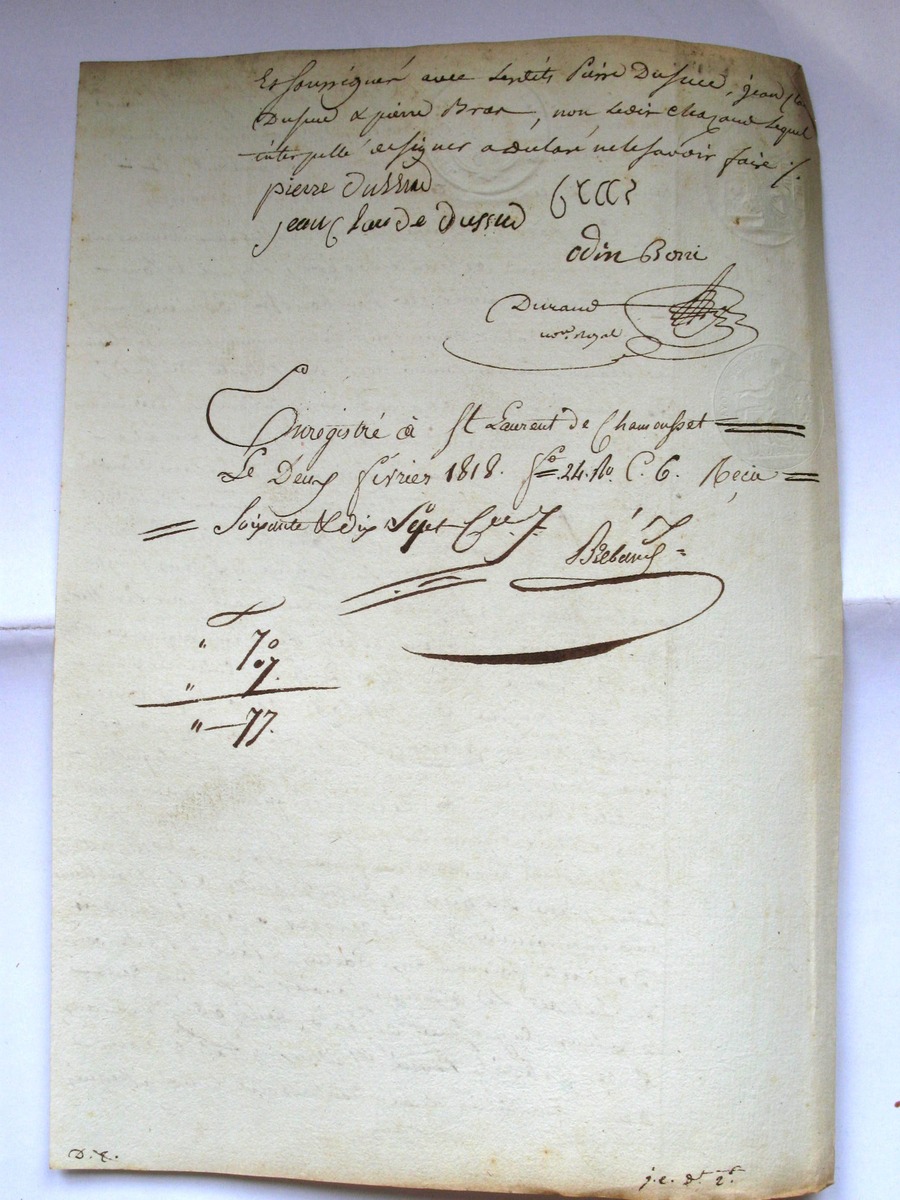 Et soussigné avec lesdits Pierre Dussud, jean Cla
Dussud & pierre Bras, non ledit Chazaud lequel
interpellé de signer a déclaré ne le savoir faire ⁒
pierre dussud
jean Claude dussud
odin Boni
Durand
not. Royal
Enregistré à St Laurent de Chamousset
Le Deux février 1818. f° 24. R° C. 6. Reçu
Soixante & dix Sept C.
" 70
" 07.
" — 77.
D. &.
j. c. d. 2.